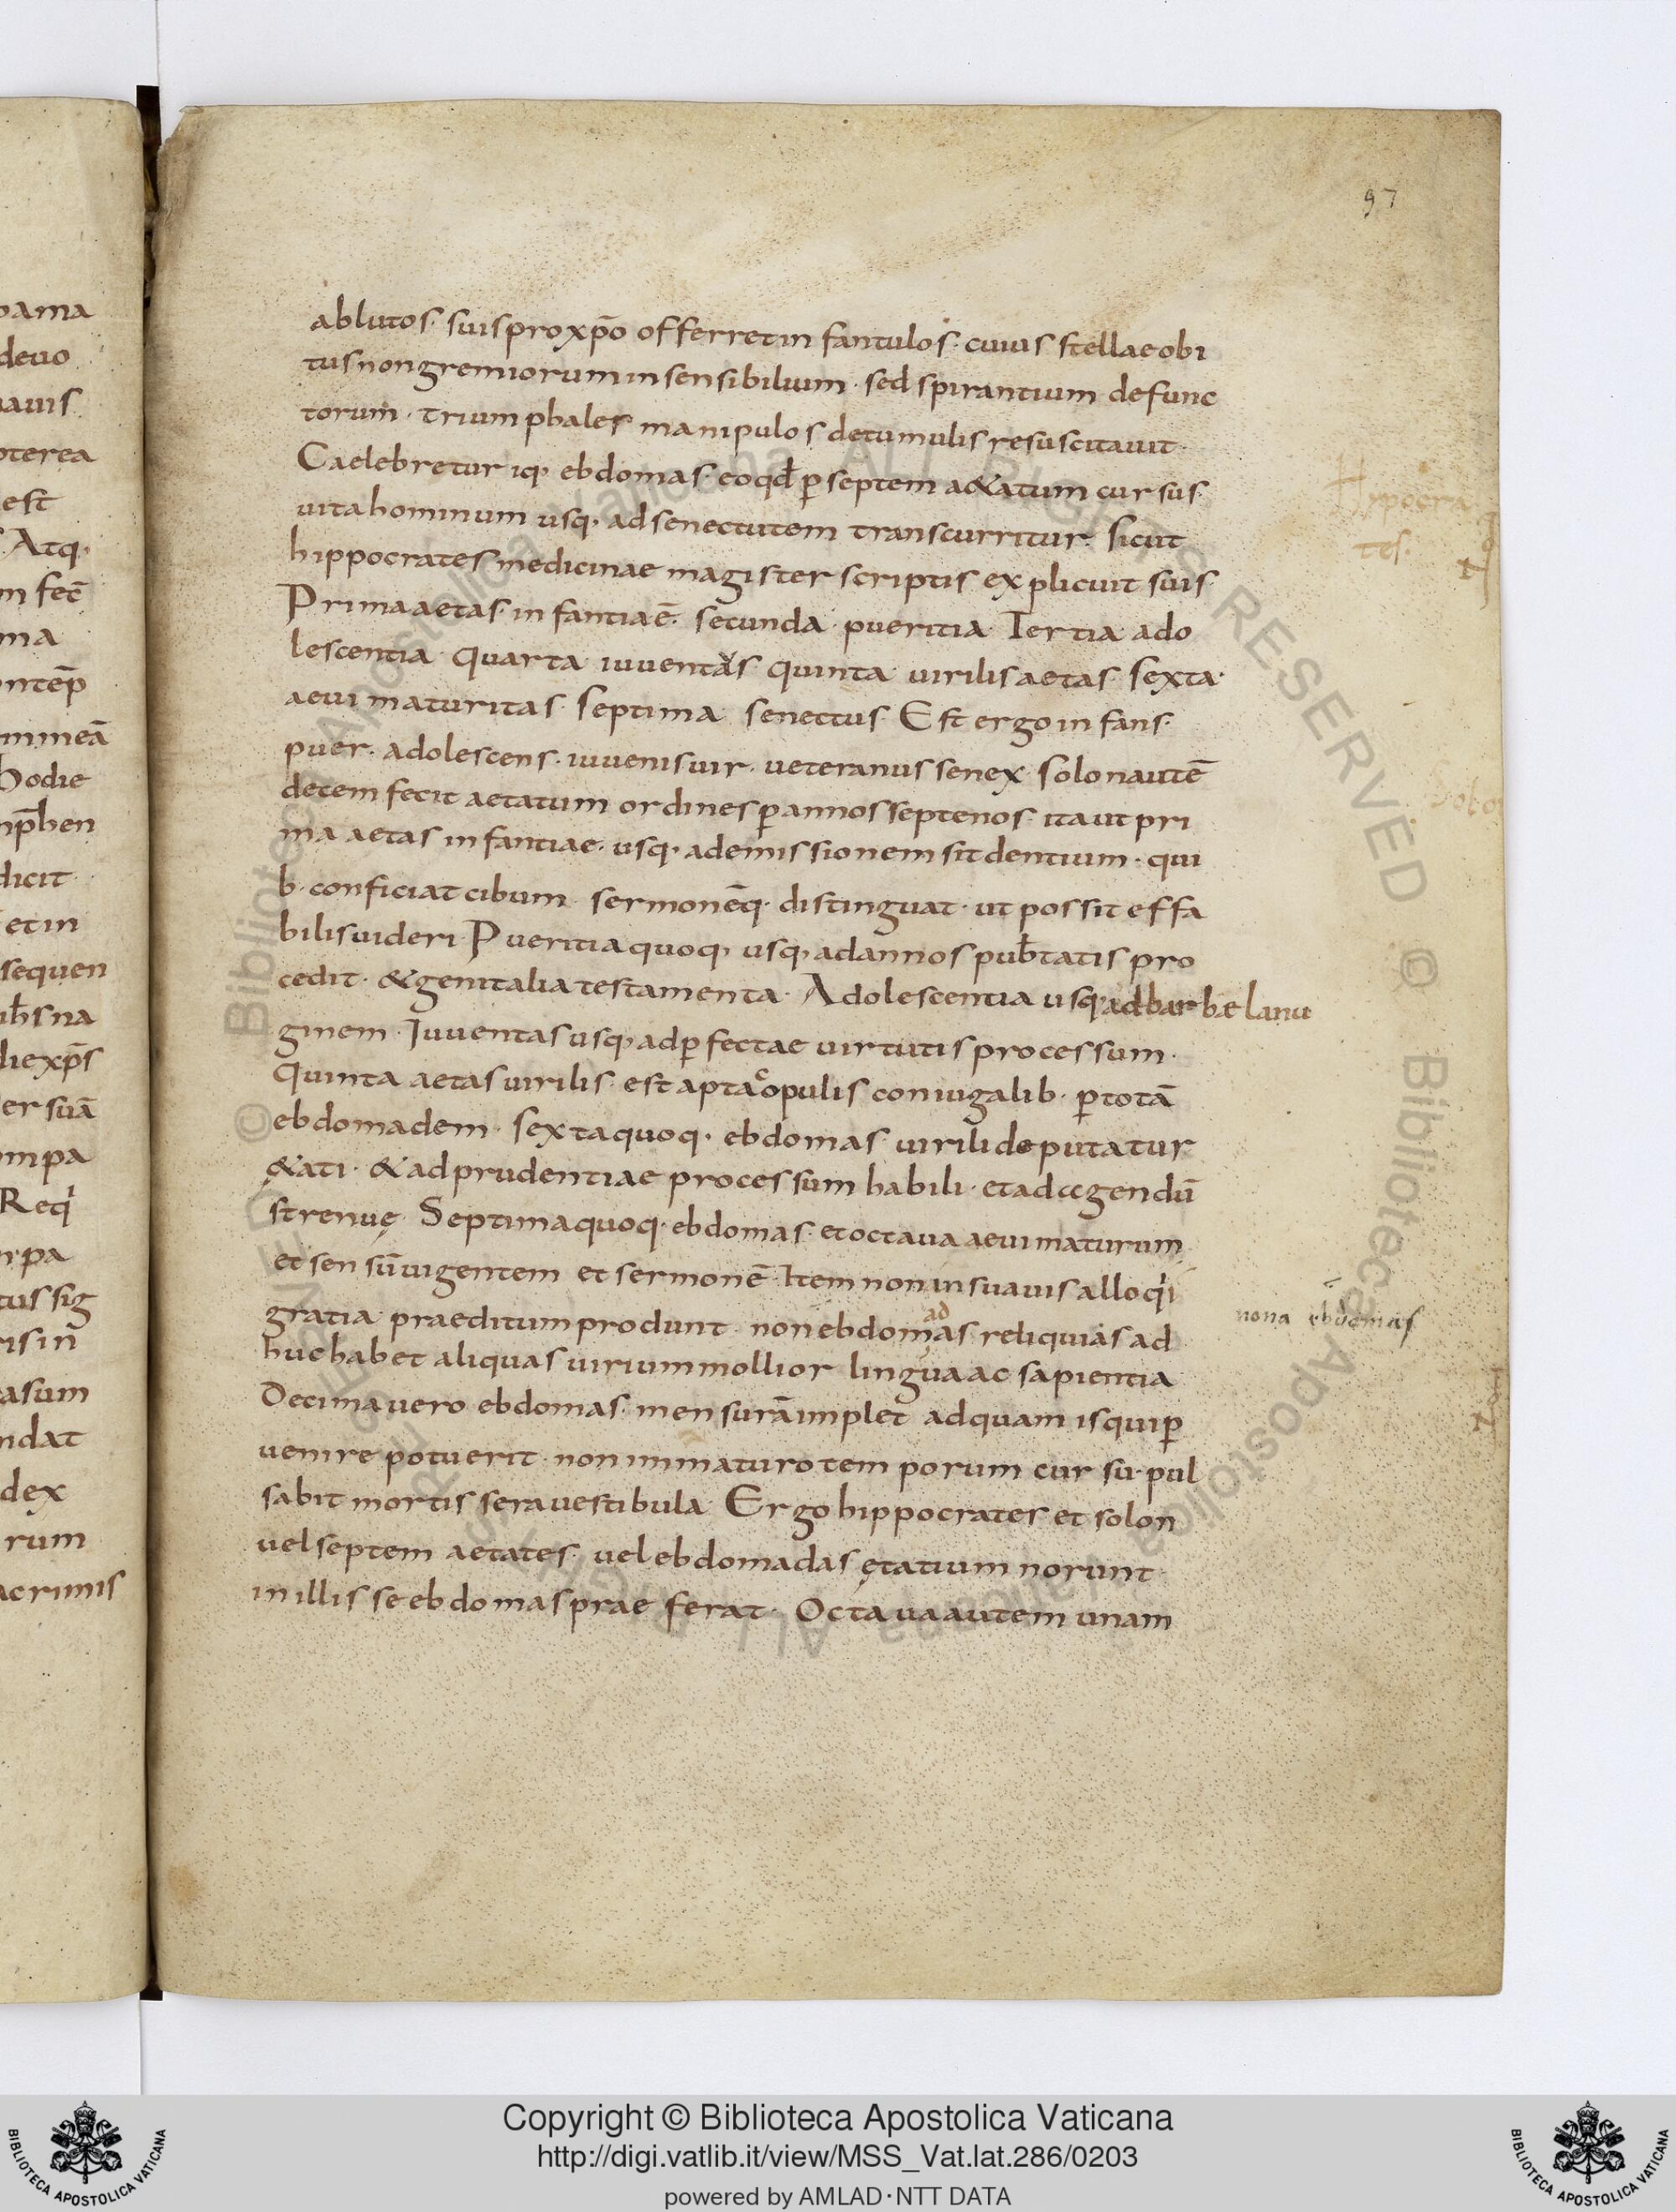 97
ablutos· suis pro xp̄o offerret infantulos· cuius stellae obi
tus non gremiorum insensibilium· sed spirantium defunc
torum· triumphales manipulos de tumulis resuscitavit·
Caelebretur iq· ebdomas· eo qđ p̄ septem a&atum cursus·
vita hominum usq· ad senectutem transcurritur· sicut
hippocrates medicinae magister scriptis explicuit suis·
Prima aetas· infantia ē· secunda· pueritia Tertia ado
lescentia quarta iuventas quinta virilis aetas sexta·
aevi maturitas· septima senectus· Est ergo infans·
puer· adolescens· iuvenis vir· veteranus senex· solon autē
decem fecit aetatum ordines p̄ annos septenos· ita ut pri
ma aetas infantiae· usq· ad emissionem sit dentium· qui
b· conficiat cibum· sermonēq· distinguat· ut possit effa
bilis videri· Pueritia quoq· usq· ad annos pub̄tatis pro
cedit· & genitalia testamenta· Adolescentia usq· ad barbæ lanu
ginem· Iuventas usq· ad p̄fectae virtutis processum·
Quinta aetas virilis· est apta copulis coniugalib· p̄ totā
ebdomadem· sexta quoq· ebdomas virili deputatur
&ati· & ad prudentiae processum habili· et ad agendū
strenuę· Septima quoq· ebdomas· et octava aevi maturum
et sensū vigentem et sermonē· Item non insuavis alloqi
gratia praeditum produnt· non ebdomas reliquias ad
ad
huc habet aliquas virium mollior lingua ac sapientia
Decima vero ebdomas· mensurā implet ad quam is qui p̄
venire potuerit· non immaturo temporum cursu· pul
sabit mortis sera vestibula· Ergo hippocrates et solon
vel septem aetates· vel ebdomadas ętatum norunt·
in illis se ebdomas praeferat· Octava autem unam
Hypocra
tes·
nona ebdomas
Copyright © Biblioteca Apostolica Vaticana
http://digi.vatlib.it/view/MSS_Vat.lat.286/0203
powered by AMLAD·NTT DATA
BIBLIOTECA APOSTOLICA VATICANA
BIBLIOTECA APOSTOLICA VATICANA